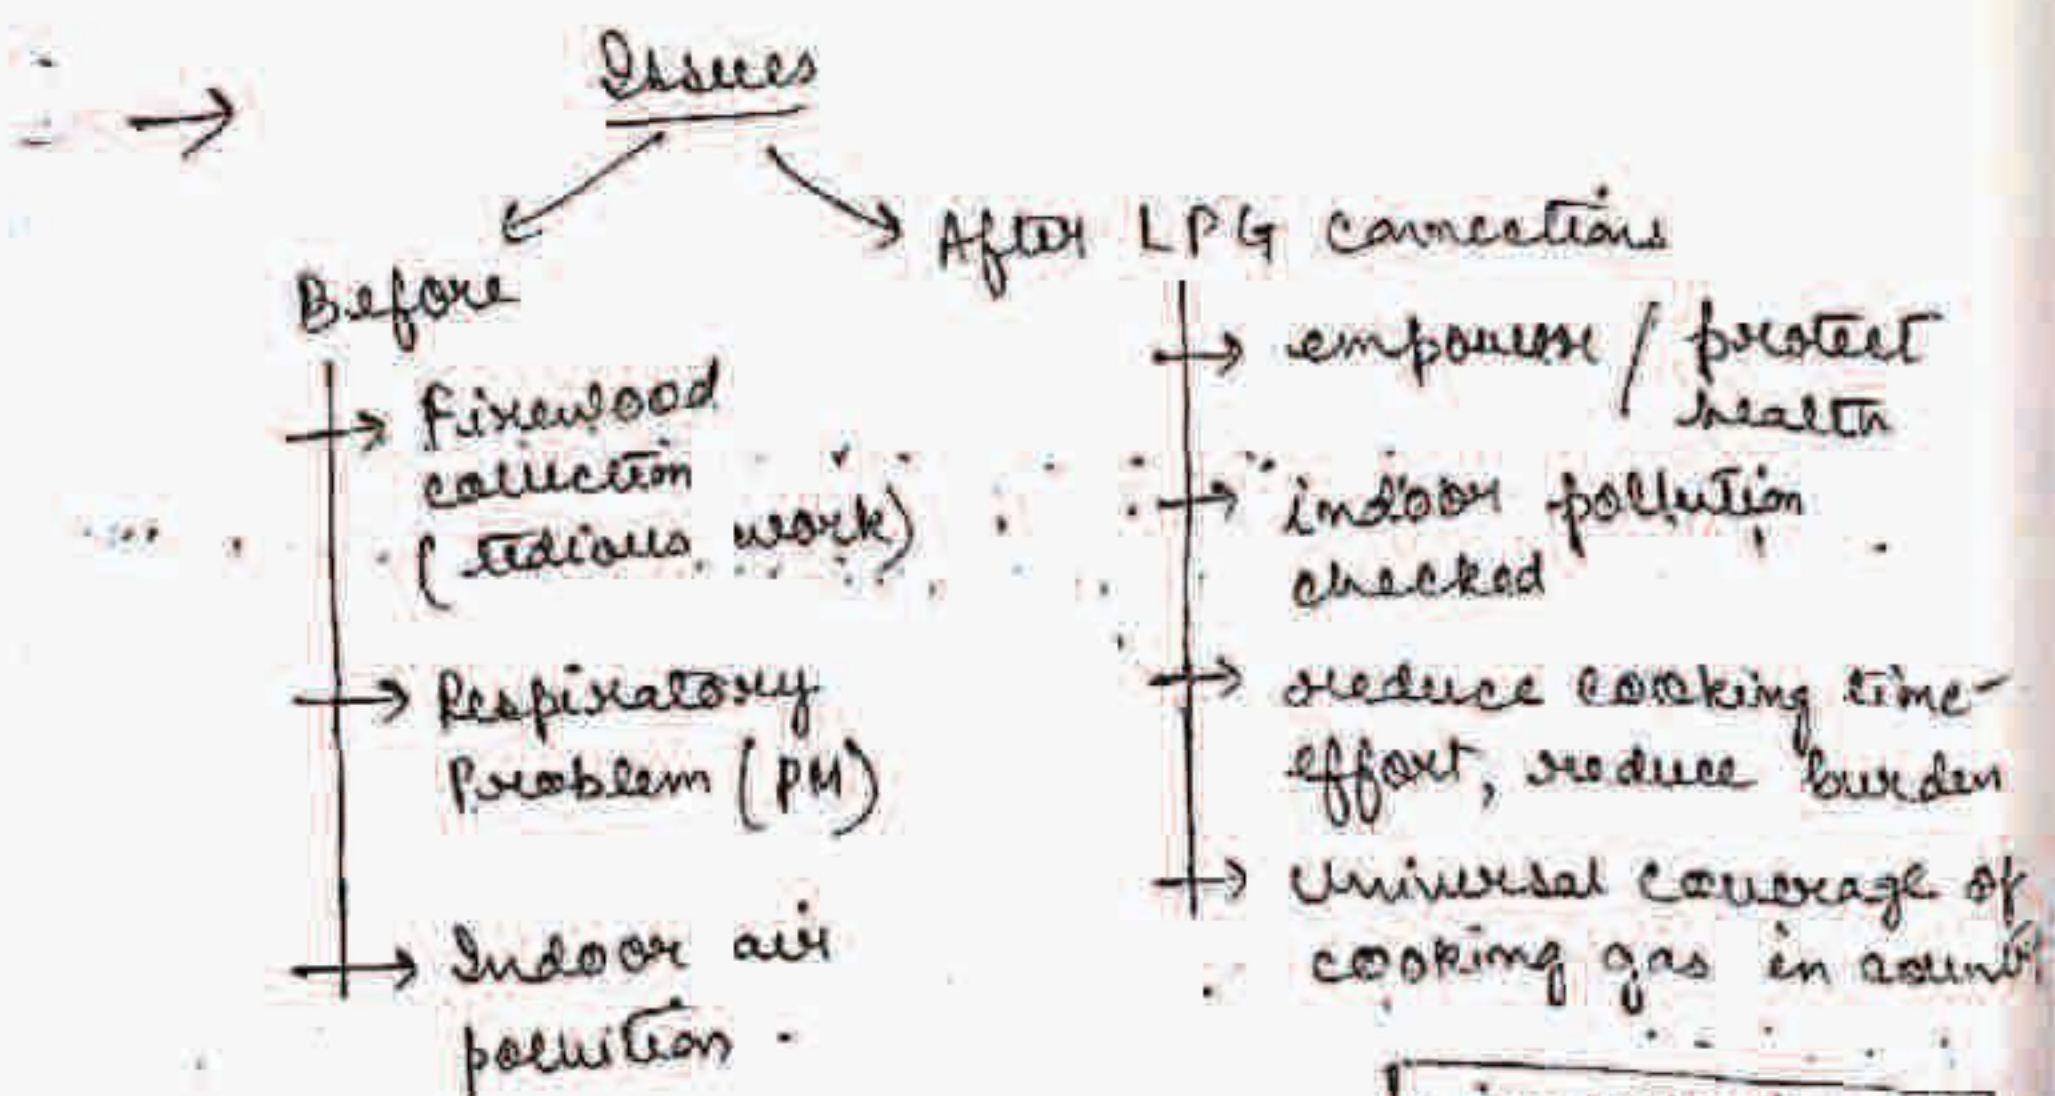 Issues
Before
Firewood
collection
(tedious work)
Respiratory
Problem (PM)
Indoor air
pollution.
After LPG connections
empower / protect
health
indoor pollution
checked
reduce cooking time-
effort, reduce burden
Universal coverage of
cooking gas in